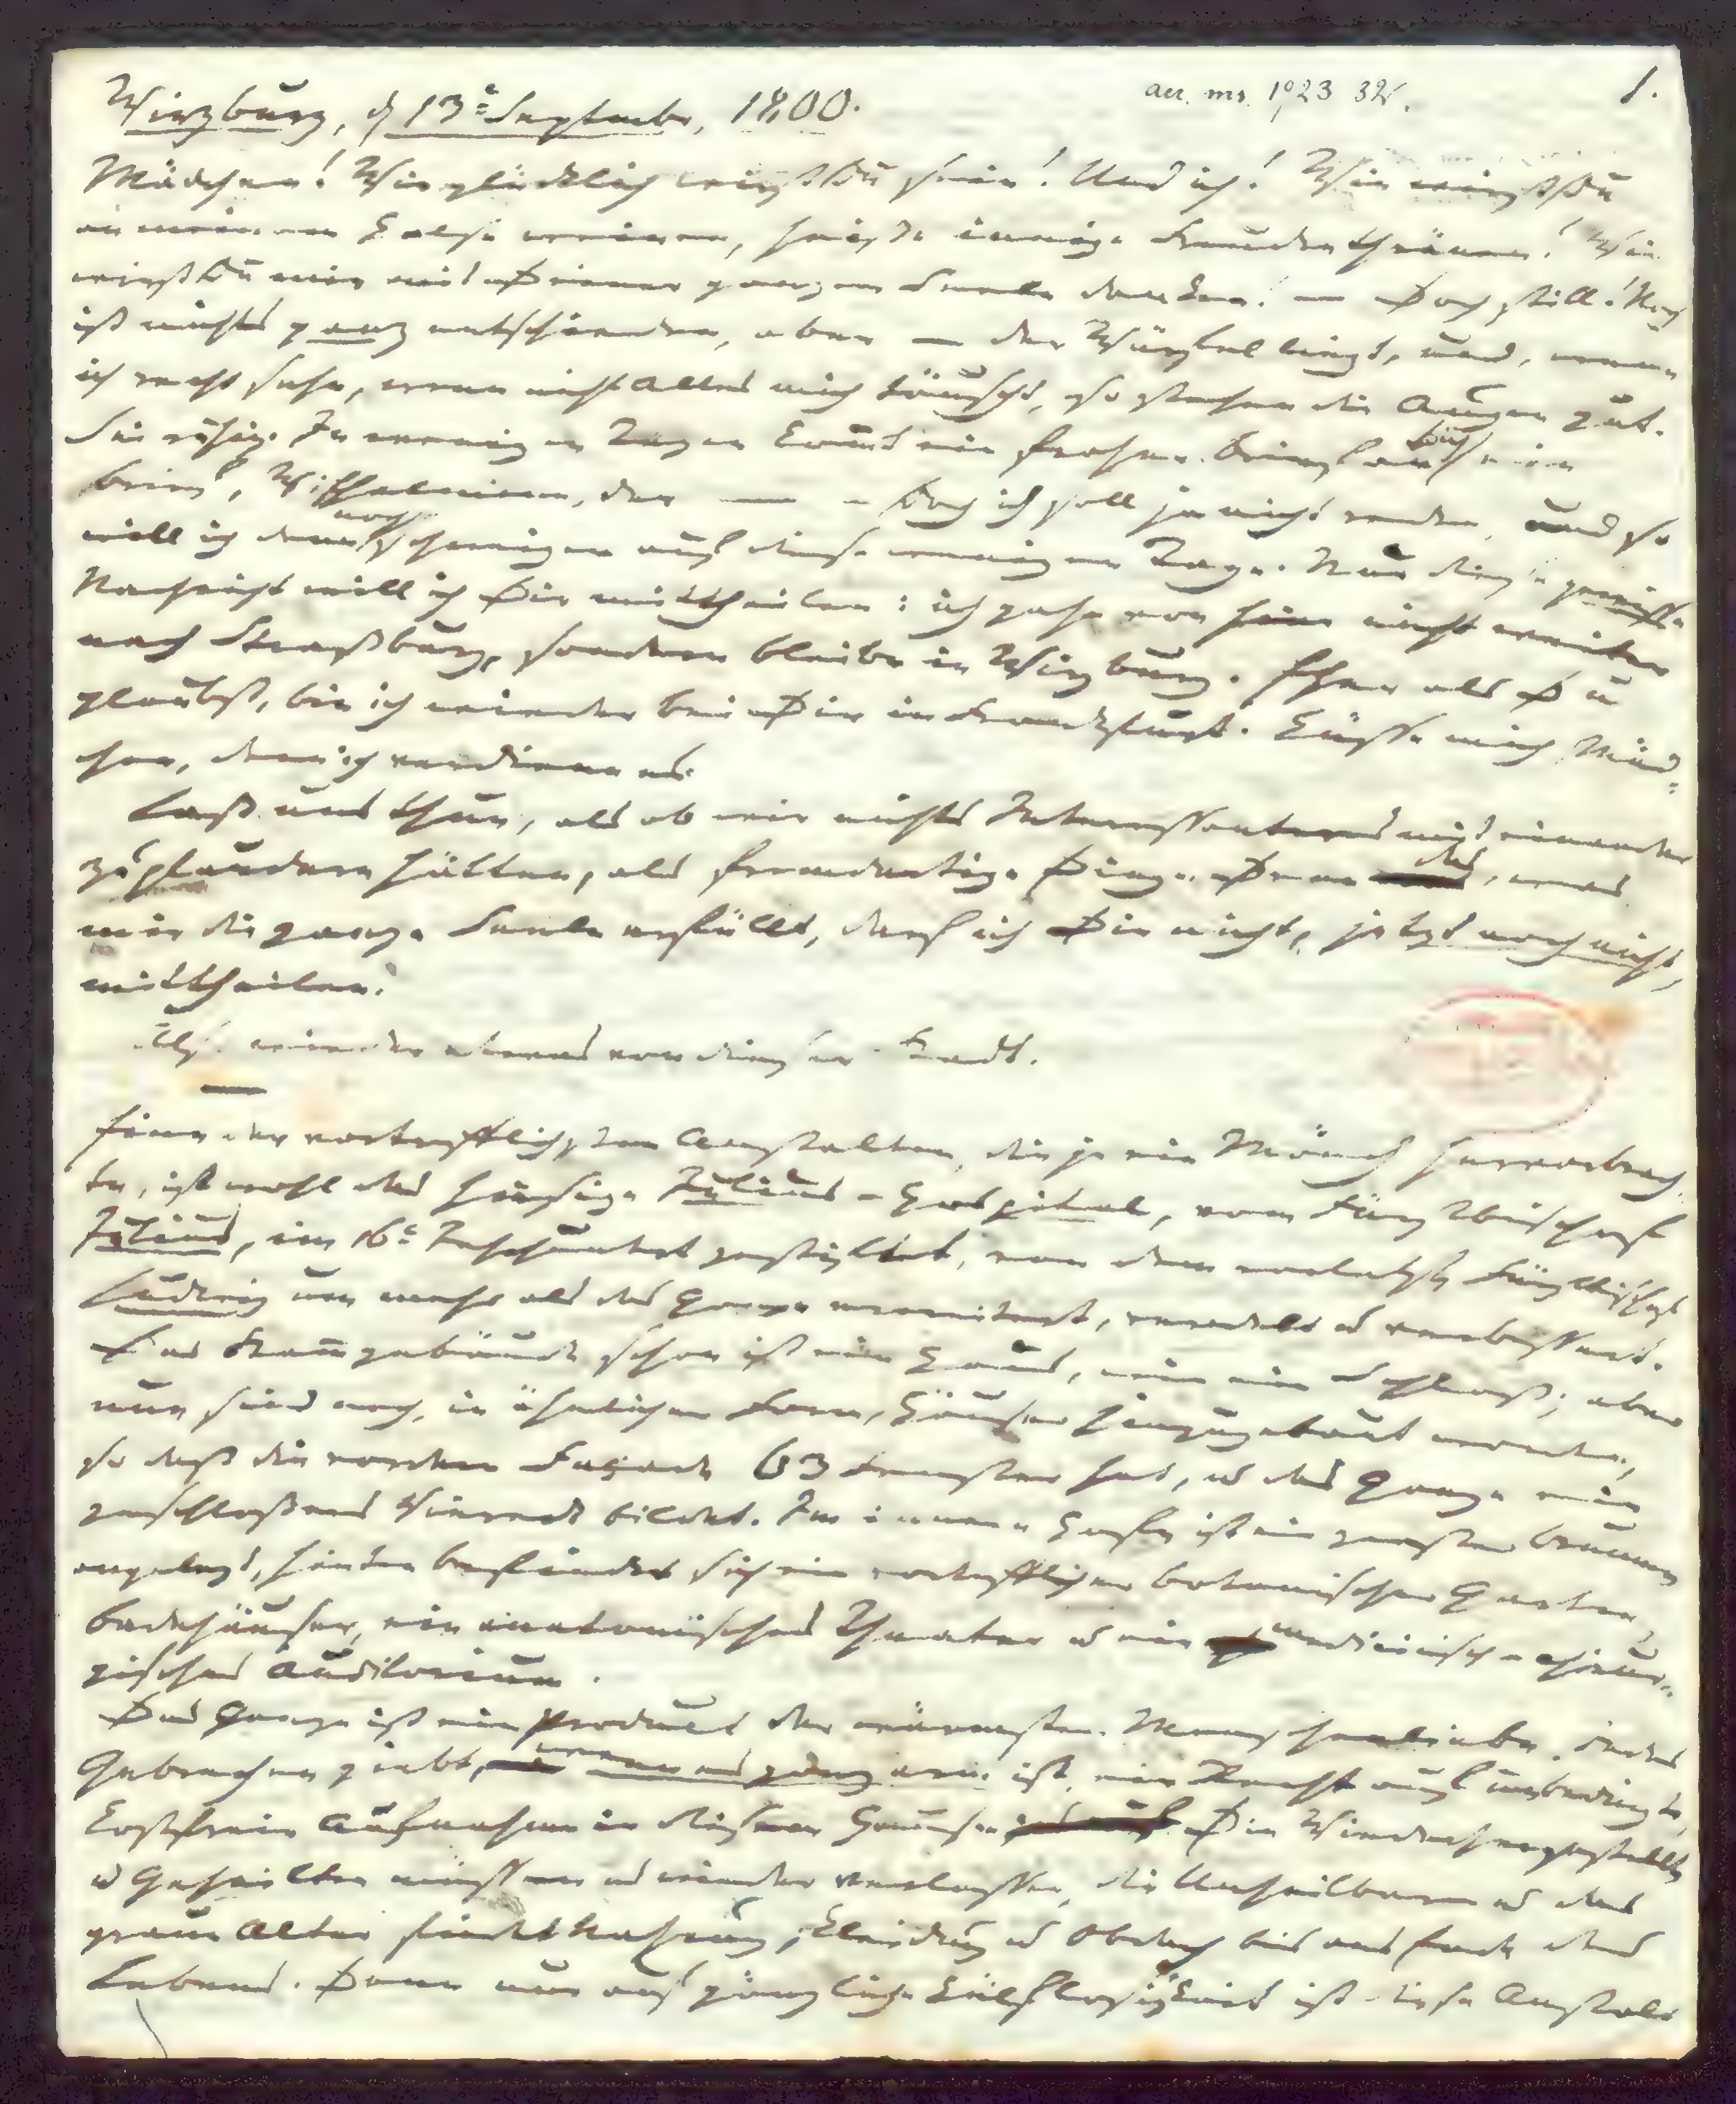 Würzburg, d 13t September, 1800.
acc. ms. 1923 325.
1.
Mädchen! Wie glücklich wirst Du sein! Und ich! Wie wirst Du
an meinem Halse weinen, heiße innige Freudenthränen! Wie
wirst Du mir mit Deiner ganzen Seele danken! — Doch still! Noch
ist nichts ganz entschieden, aber — der Würfel liegt, und, wenn
ich recht sehe, wenn nicht Alles mich täuscht, so stehen die Augen gut.
Sei ruhig. In wenigen Tagen kommt ein froher Brief an Dich, ein
Brief, Wilhelmine, der — — Doch ich soll ja nicht reden, und so
will ich denn noch schweigen auf diese wenigen Tage. Nur diese gewisse
Nachricht will ich Dir mittheilen: ich gehe von hier nicht weiter
nach Straßburg, sondern bleibe in Würzburg. Eher als Du
glaubst, bin ich wieder bei Dir in Frankfurt. Küsse mich, Mäd-
chen, denn ich verdiene es.
Laß uns thun, als ob wir nichts Interessanteres mit einander
zu plaudern hätten, als fremdartige Dinge. Denn das, was
mir die ganze Seele erfüllt, darf ich Dir nicht, jetzt noch nicht,
mittheilen.
Also wieder etwas von dieser Stadt.
Eine der vortrefflichsten Anstalten, die je ein Mönch hervorbrach-
te, ist wohl das hiesige Julius-Hospital, vom Fürstbischof
Julius, im 16t Jahrhundert gestiftet, von dem vorletzten Fürstbischof
Ludwig um mehr als das Ganze erweitert, veredelt u verbessert.
Das Stammgebäude schon ist ein Haus, wie ein Schloß; aber
nun sind noch, in ähnlicher Form, Häuser hinzugebaut worden,
so daß die vordere Façade 63 Fenster hat, u das Ganze ein
geschloßenes Viereck bildet. Im innern Hofe ist ein großer Brunnen
angelegt, hinten befindet sich ein vortrefflicher botanischer Garten,
Badehäuser, ein anatomisches Theater u ein medicinisch-chirur-
gisches Auditorium.
Das Ganze ist ein Product der wärmsten Menschenliebe. Jedes
Gebrechen giebt, wenn es ganz arm ist, ein Recht auf unbedingte,
kostfreie Aufnahme in diesem Hause. Die Wiederhergestellten
u Geheilten müssen es wieder verlassen, die Unheilbaren u das
graue Alter findet Nahrung, Kleidung u Obdach bis ans Ende des
Lebens. Denn nur auf gänzliche Hülflosigkeit ist diese Anstalt